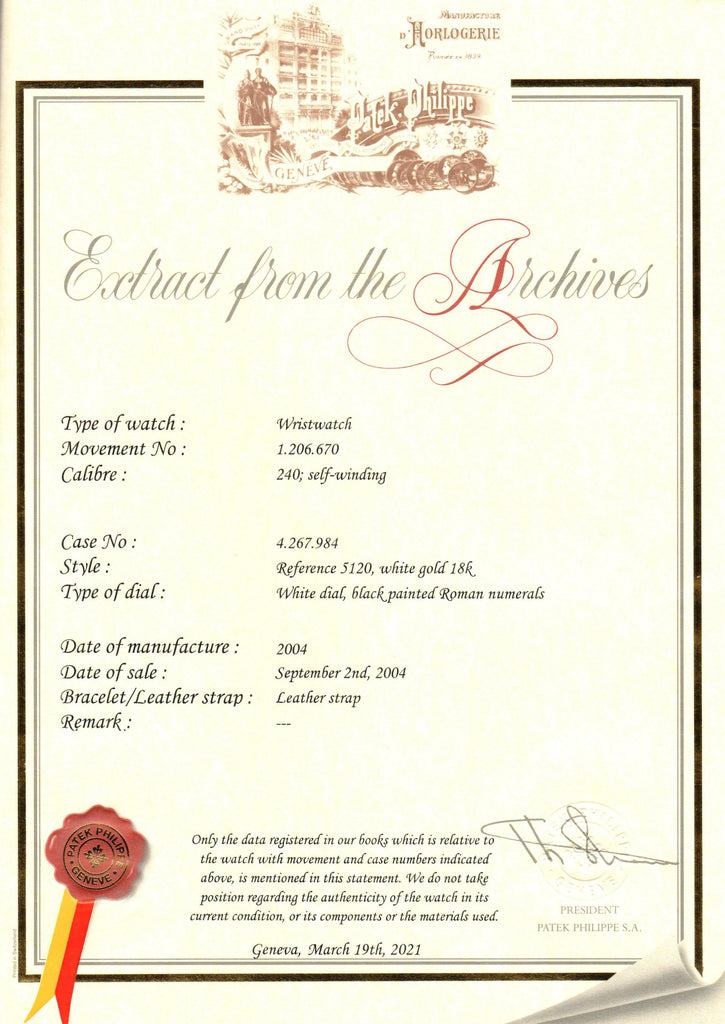 MANUFACTURE
D'HORLOGERIE
FONDÉE EN 1839
Patek Philippe
GENÈVE
Extract from the Archives
Type of watch : Wristwatch
Movement No : 1.206.670
Calibre : 240; self-winding
Case No : 4.267.984
Style : Reference 5120, white gold 18k
Type of dial : White dial, black painted Roman numerals
Date of manufacture : 2004
Date of sale : September 2nd, 2004
Bracelet/Leather strap : Leather strap
Remark : ---
PATEK PHILIPPE
GENEVE
Only the data registered in our books which is relative to
the watch with movement and case numbers indicated
above, is mentioned in this statement. We do not take
position regarding the authenticity of the watch in its
current condition, or its components or the materials used.
Geneva, March 19th, 2021
PRESIDENT
PATEK PHILIPPE S.A.
Printed in Switzerland